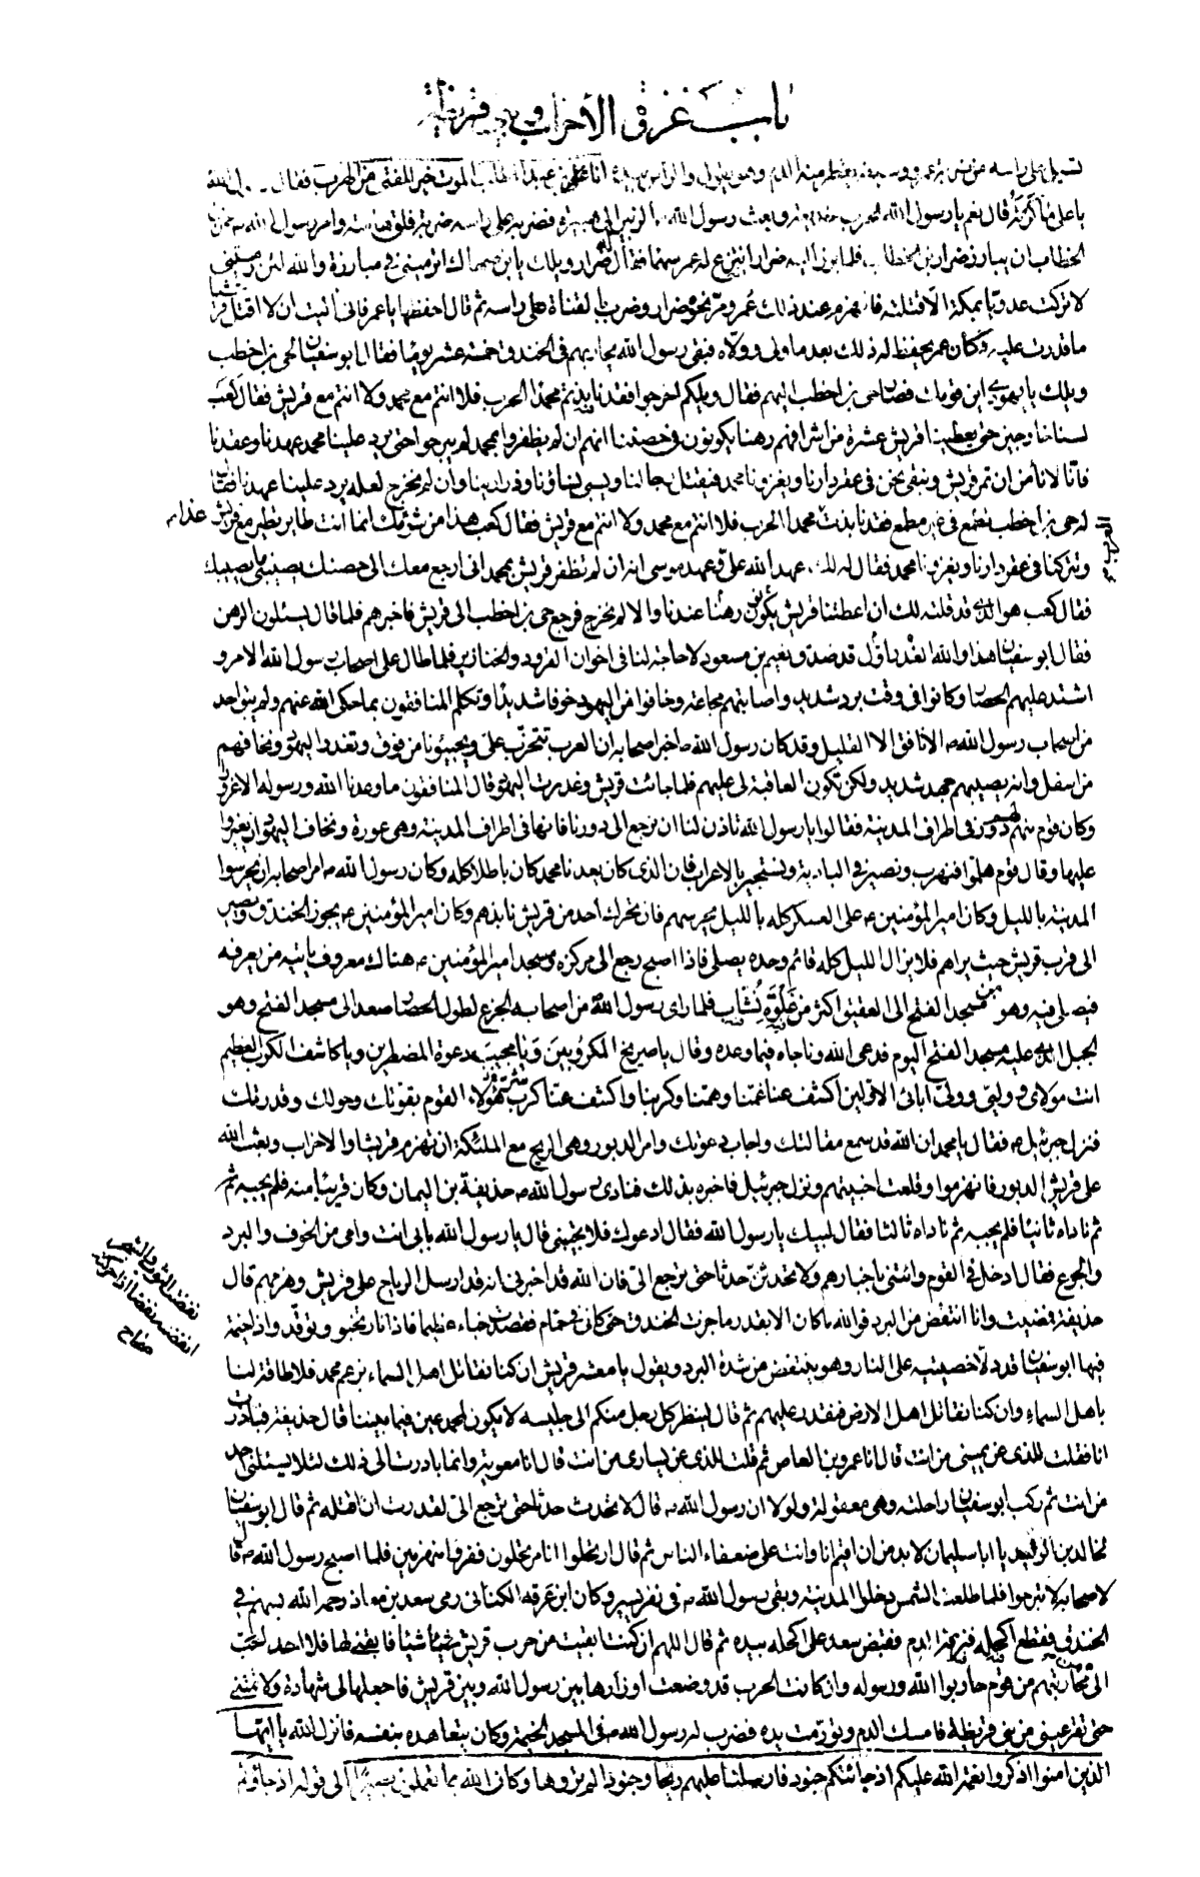 باب غزوة الأحزاب وبني قريظة
تسيل على راسه من ضربة عمرو وسيفه يقطر منه الدم وهو يقول والراس بيده انا على ابن عبد المطلب الموت خير للفتى من الهرب فقال رسول الله
يا على ماكرته قال نعم يا رسول الله الحرب خديعة وبعث رسول الله ص الزبير الى هبيرة فضربه على راسه ضربة فلق هامته وامر رسول الله ص عمر بن
الخطاب ان يبارز ضرار بن الخطاب فلما برز اليه ضرار انتزع له عمر سهما فقال له ضرار ويلك يا بن صهاك اترميني في مبارزة والله لئن رميتني
لا تركت عدويا بمكة الا قتلته فانهزم عند ذلك عمر ومر نحوه ضرار وضرب بالقناة على راسه ثم قال احفظها يا عمر فاني اليت ان لا اقتل قرشيا
ما قدرت عليه وكان عمر يحفظ له ذلك بعد ما ولى وولاه فبقى رسول الله يحاربهم في الخندق خمسة عشر يوما فقال ابو سفيان لحى بن اخطب
ويلك يا يهودي اين قومك فصار حى بن اخطب اليهم فقال ويلكم اخرجوا فقد نابذتم محمدا الحرب فلا انتم مع محمد ولا انتم مع قريش فقال كعب
لسنا خارجين حتى يعطينا قريش عشرة من اشرافهم رهنا يكونون في حصننا انهم ان لم يظفروا بمحمد لم يبرحوا حتى يرد علينا محمد عهدنا وعقدنا
فانا لا نأمن ان تمر قريش ونبقى نحن في عقر دارنا ويغزونا محمد فيقتل رجالنا ويسبي نساؤنا وذرارينا وان لم نخرج لعله يرد علينا عهدنا فقال
له حى بن اخطب تطمع في غير مطمع فقد نابذت محمدا الحرب فلا انتم مع محمد ولا انتم مع قريش فقال كعب هذا من شؤمك انما انت طاير تطير مع قريش غدا
وتتركنا في عقر دارنا ويغزونا محمد فقال له لك عهد الله على وعهد موسى انه ان لم تظفر قريش بمحمد اني ارجع معك الى حصنك يصيبني ما يصيبك
فقال كعب هو الذي قد قلته لك ان اعطتنا قريش رهنا يكون عندنا والا لم نخرج فرجع حى بن اخطب الى قريش فاخبرهم فلما قال يسئلون الرهن
فقال ابو سفيان هذا والله الغدر باول قد صدق نعيم بن مسعود لا حاجة لنا في اخوان القرود والخنازير فلما طال على اصحاب رسول الله الامر و
اشتد عليهم الحصار وكانوا في وقت برد شديد واصابتهم مجاعة وخافوا من اليهود خوفا شديدا وتكلم المنافقون بما حكى الله عنهم ولم يبق احد
من اصحاب رسول الله ص الا نافق الا القليل وقد كان رسول الله ص اخبر اصحابه ان العرب تتحزب على ويجيئونا من فوق وتغدر اليهود ونخافهم
من اسفل وانه يصيبهم جهد شديد ولكن تكون العاقبة لي عليهم فلما جائت قريش وغدرت اليهود قال المنافقون ما وعدنا الله ورسوله الا غرورا
وكان قوم منهم لهم دور في اطراف المدينة فقالوا يا رسول الله تاذن لنا ان نرجع الى دورنا فانها في اطراف المدينة وهي عورة ونخاف اليهود ان يغيروا
عليها وقال قوم هلموا فنهرب ونصير في البادية ونستجير بالاعراب فان الذي كان يعدنا محمد كان باطلا كله وكان رسول الله ص امر اصحابه ان يحرسوا
المدينة بالليل وكان امير المؤمنين ع على العسكر كله بالليل يحرسهم فان تحرك احد من قريش نابذهم وكان امير المؤمنين ع يجوز الخندق ويصير
الى قرب قريش حيث يراهم فلا يزال الليل كله قائم وحده يصلي فاذا اصبح رجع الى مركزه ومسجد امير المؤمنين ع هناك معروف ياتيه من يعرفه
فيصلي فيه وهو من مسجد الفتح الى العقيق اكثر من غلوة نشاب فلما راى رسول الله من اصحابه الجزع لطول الحصار صعد الى مسجد الفتح وهو
الجبل الذي عليه مسجد الفتح اليوم فدعى الله وناجاه فيما وعده وقال يا صريخ المكروبين ويا مجيب دعوة المضطرين ويا كاشف الكرب العظيم
انت مولاي وولي وولي ابائي الاولين اكشف عنا غمنا وهمنا وكربنا واكشف عنا كرب شر هؤلاء القوم بقوتك وحولك وقدرتك
فنزل جبرئيل ع فقال يا محمد ان الله قد سمع مقالتك واجاب دعوتك وامر الدبور وهي الريح مع الملئكة ان تهزم قريشا والاحزاب وبعث الله
على قريش الدبور فانهزموا وقلعت اخبيتهم ونزل جبرئيل فاخبره بذلك فنادى رسول الله ص حذيفة بن اليمان وكان قريبا منه فلم يجبه ثم
ثم ناداه ثانيا فلم يجبه ثم ناداه ثالثا فقال لبيك يا رسول الله فقال ادعوك فلا تجيبني قال يا رسول الله بابي انت وامي من الخوف والبرد
والجوع فقال ادخل في القوم وائتني باخبارهم ولا تحدثن حدثا حتى ترجع الى فان الله قد اخبرني انه قد ارسل الرياح على قريش وهزمهم قال
حذيفة فمضيت وانا انتفض من البرد فوالله ما كان الا بقدر ما جزت الخندق حتى كاني في حمام فقصدت خباء عظيما فاذا نار تخبو وتوقد واذا خيمة
فيها ابو سفيان قد دلا خصيتيه على النار وهو ينتفض من شدة البرد ويقول يا معشر قريش ان كنا نقاتل اهل السماء بزعم محمد فلا طاقة لنا
باهل السماء وان كنا نقاتل اهل الارض فنقدر عليهم ثم قال لينظر كل رجل منكم الى جليسه لا يكون لمحمد عين فيما بيننا قال حذيفة فبادرت
انا فقلت للذي عن يميني من انت قال انا عمرو بن العاص ثم قلت للذي عن يساري من انت قال انا معوية وانما بادرت الى ذلك لئلا يسئلني احد
من انت ثم ركب ابو سفيان راحلته وهي معقولة ولولا ان رسول الله ص قال لا تحدث حدثا حتى ترجع الى لقدرت ان اقتله ثم قال ابو سفيان
لخالد بن الوليد يا ابا سليمان لا بد من ان اقيم انا وانت على ضعفاء الناس ثم قال ارتحلوا انا مرتحلون ففروا منهزمين فلما اصبح رسول الله ص قال
لاصحابه لا تبرحوا فلما طلعت الشمس دخلوا المدينة وبقى رسول الله ص في نفر يسير وكان ابن عرقة الكناني رمى سعد بن معاذ رحمه الله بسهم في
الخندق فقطع اكحله فنزفه الدم فقبض سعد على اكحله بيده ثم قال اللهم ان كنت ابقيت من حرب قريش شيئا فابقني لها فلا احد احب
الى محاربتهم من قوم حاربوا الله ورسوله وان كانت الحرب قد وضعت اوزارها بين رسول الله وبين قريش فاجعلها لي شهادة ولا تمتني
حتى تقر عيني من بني قريظة فامسك الدم وتورمت يده فضرب له رسول الله ص في المسجد الخيمة وكان يتعاهده بنفسه فانزل الله يا ايها
الذين امنوا اذكروا نعمة الله عليكم اذ جائتكم جنود فارسلنا عليهم ريحا وجنودا لم تروها وكان الله بما تعملون بصيرا الى قوله اذ جاؤكم
نفضت الثوب والشجر
انفضه نفضا اذا حركته
صحاح